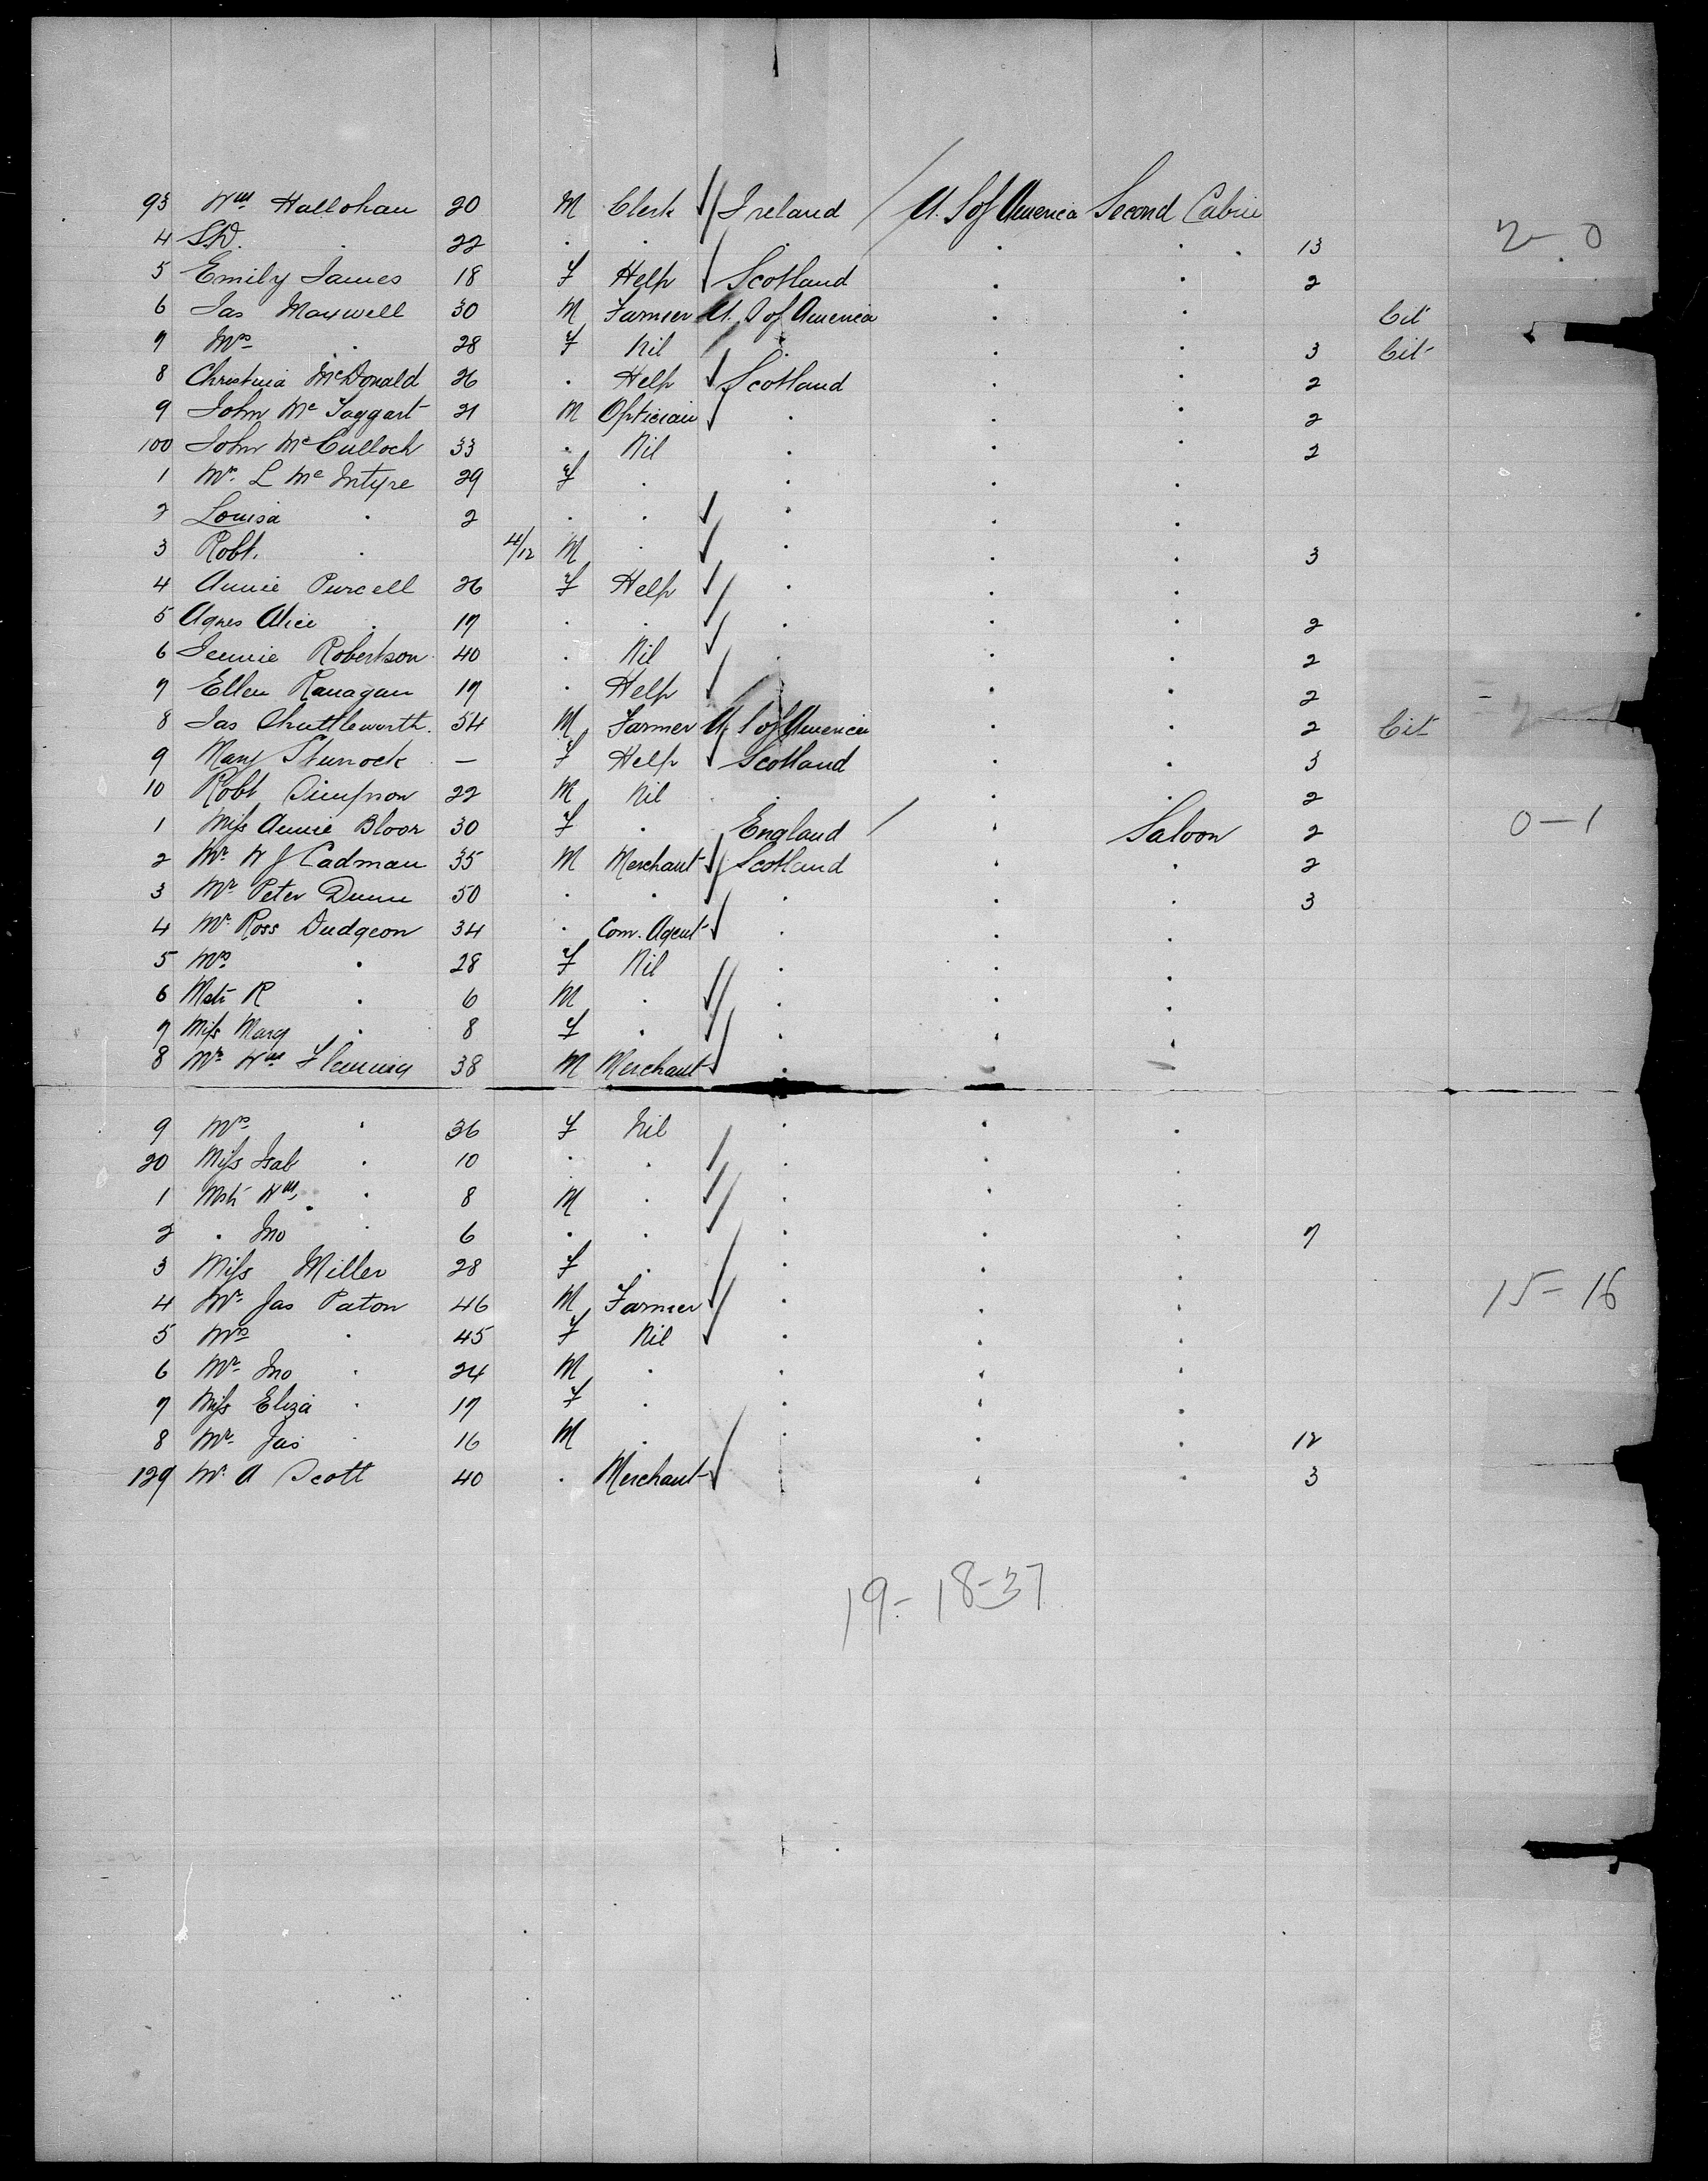 93 Wm Hallohan 20 M Clerk Ireland U. S of America Second Cabin
4 S.D. . 22 . . . . . . 13 2-0
5 Emily James 18 F Help Scotland . . 2
6 Jas Maxwell 30 M Farmer U. S of America . . Cit
7 Mrs . 28 F Nil . . . 3 Cit
8 Christina McDonald 26 . Help Scotland . . 2
9 John Mc Taggart 21 M Optician . . . 2
100 John McCulloch 33 . Nil . . . 2
1 Mrs. L Mc Intyre 29 F . . . .
2 Louisa . 2 . . . . .
3 Robt. . 4/12 M . . . . 3
4 Annie Purcell 26 F Help . . .
5 Agnes Alice . 17 . . . . . 2
6 Jennie Robertson 40 . Nil . . . 2
7 Ellen Ranagan 17 . Help . . 2
8 Jas Shuttleworth. 54 M Farmer U. S of America . . 2 Cit
9 Mary Sturrock — F Help Scotland . . 3
10 Robt Simpson 22 M Nil . . . 2
1 Miss Annie Bloor 30 F . England . Saloon 2 0-1
2 Mr. W J Cadman 35 M Merchant Scotland . . 2
3 Mr Peter Dunn 50 . . . . . 3
4 Mr. Ross Dudgeon 34 . Com. Agent . . .
5 Mrs . 28 F Nil . . .
6 Mstr R . 6 M . . . .
7 Miss Marg . 8 F . . . .
8 Mr. Wm Fleming 38 M Merchant . . .
9 Mrs . 36 F Nil . . .
20 Miss Isab . 10 . . . . .
1 Mstr Wm . 8 M . . . .
2 . Jno . 6 . . . . . 7
3 Miss Miller 28 F . . . .
4 Mr. Jas Paton 46 M Farmer . . . 15-16
5 Mrs . 45 F Nil . . .
6 Mr. Jno . 24 M . . . .
7 Miss Eliza . 17 F . . . .
8 Mr. Jas . 16 M . . . . 12
129 Mr. A Scott 40 . Merchant . . . 3
19-18-37